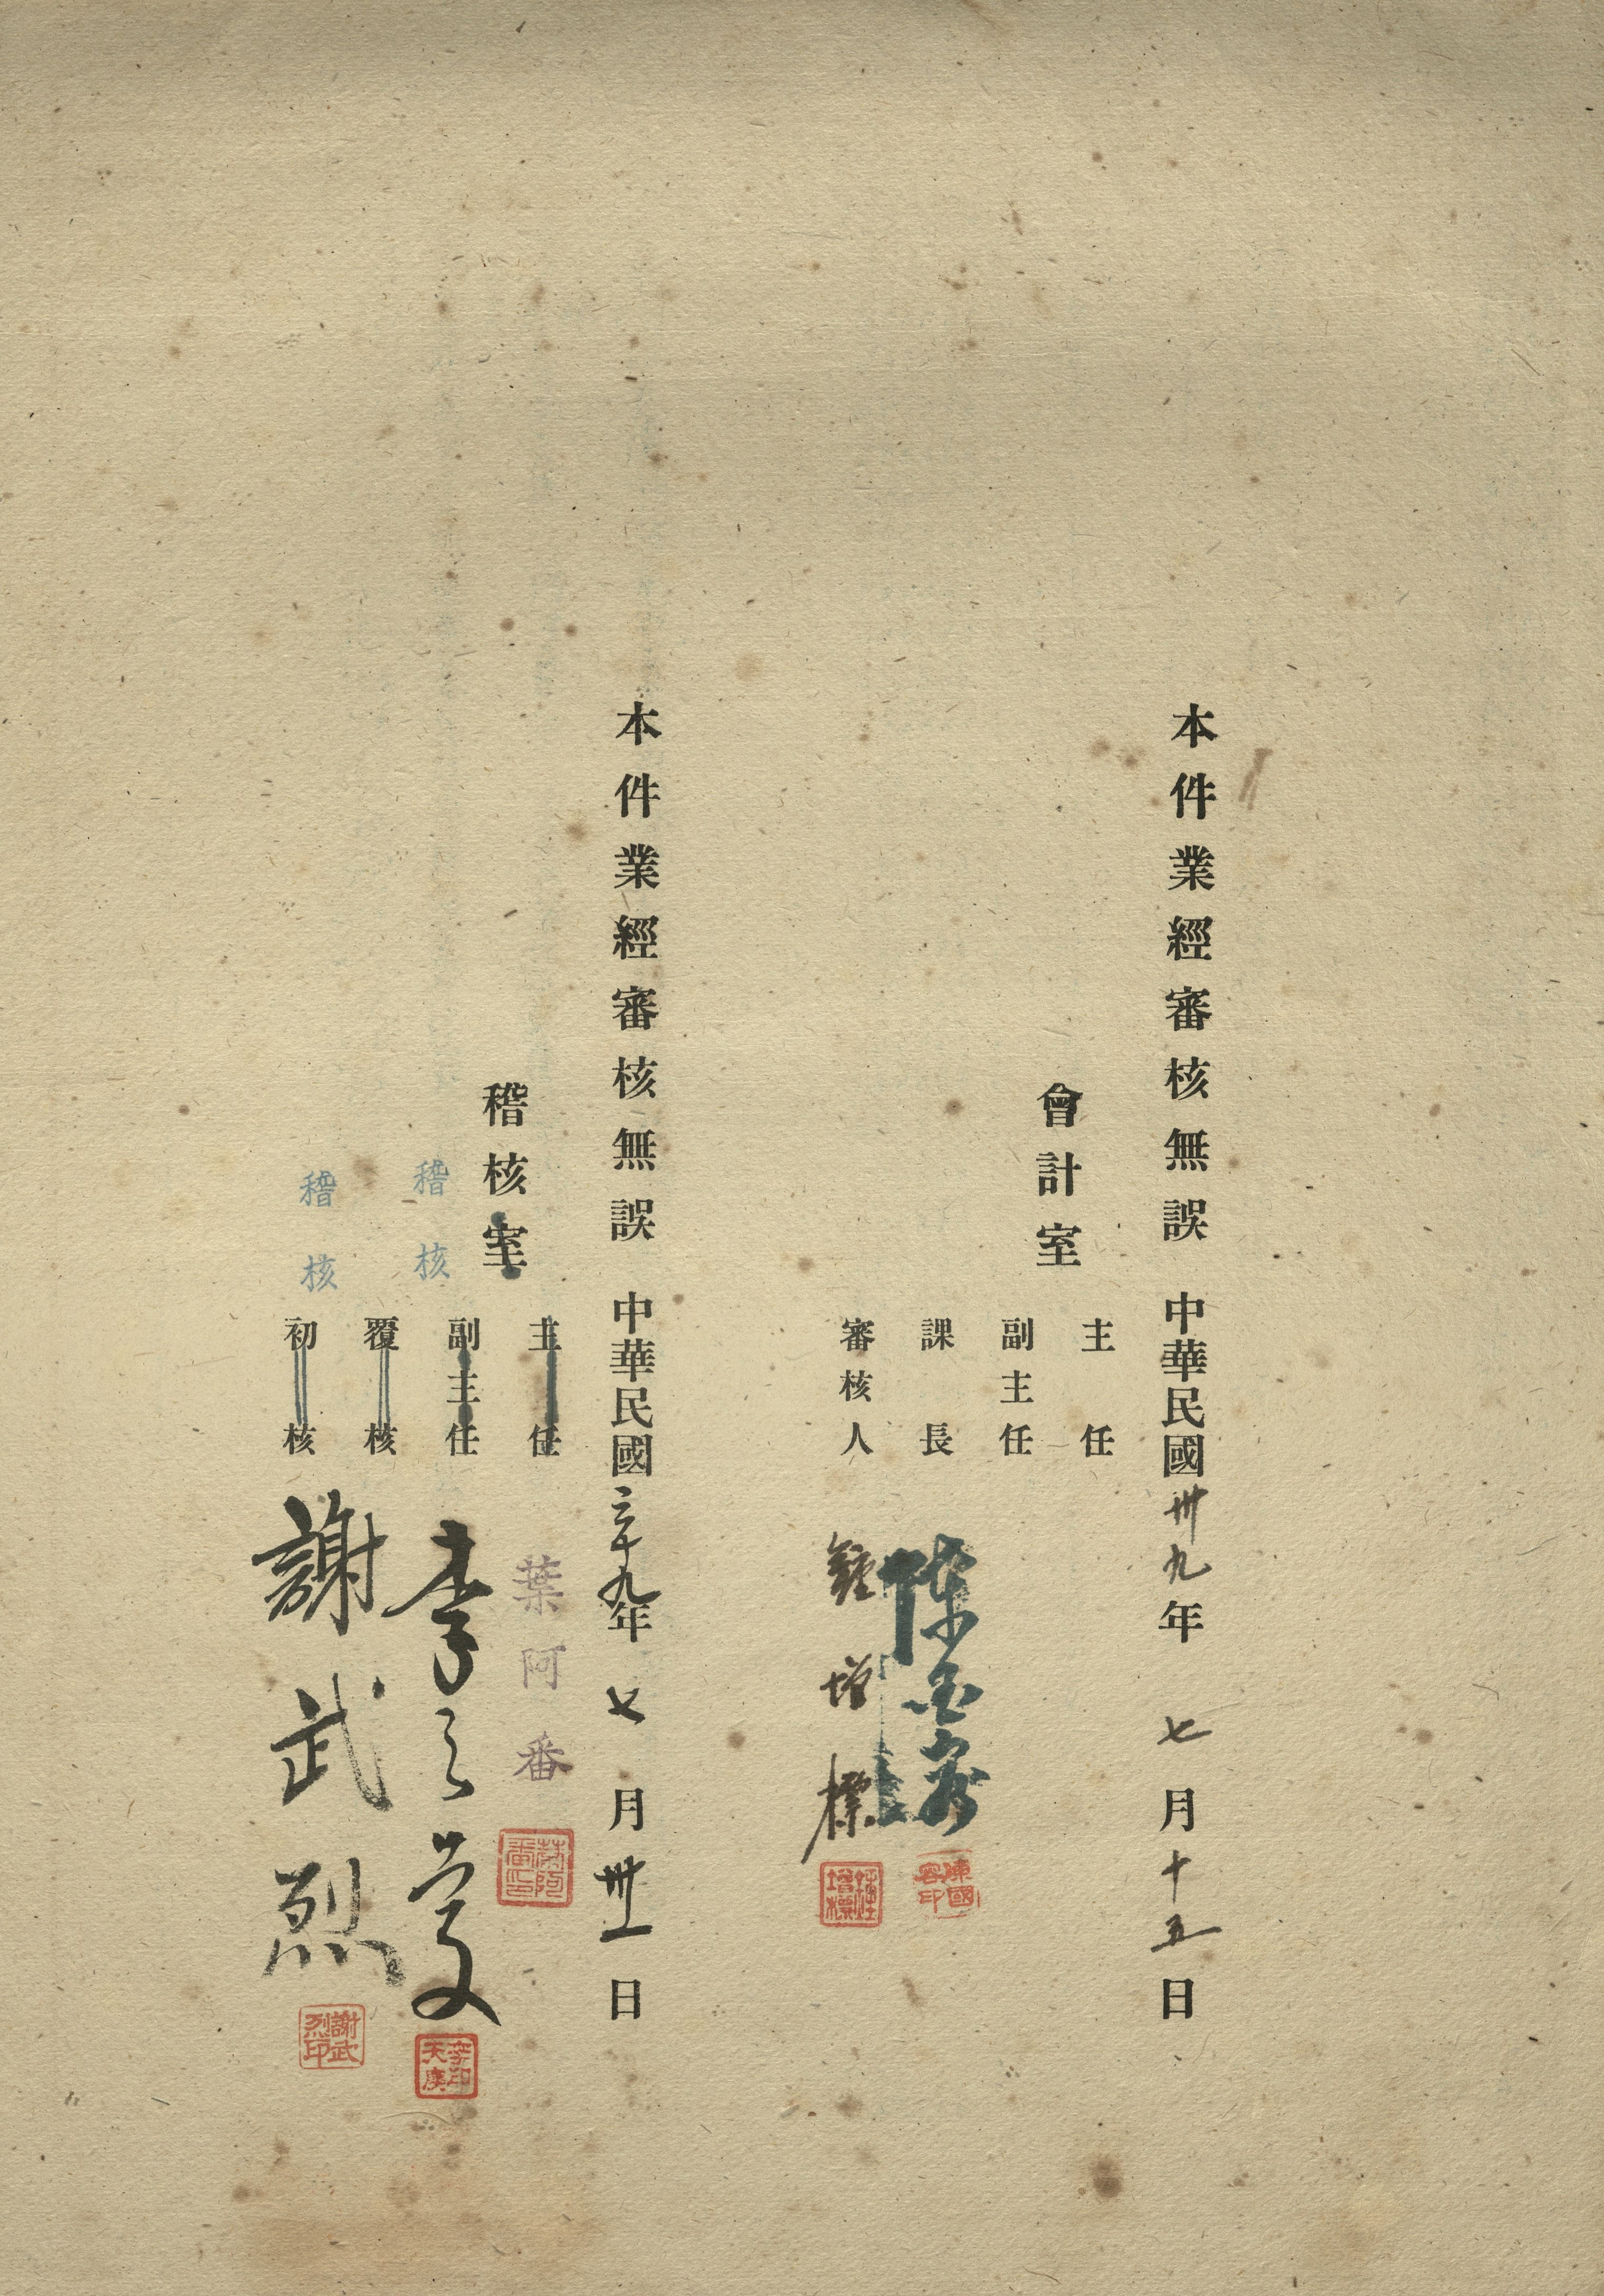 本件業經審核無誤 中華民國卅九年七月十五日
會計室
主任
副主任
課長 陳國容
審核人 鍾增標
陳國容印
鍾增標
本件業經審核無誤 中華民國三十九年七月卅一日
稽核室
主任 葉阿番
葉阿番印
副主任
稽核
覆核 李天慶
李天慶印
稽核
初核 謝武烈
謝武烈印